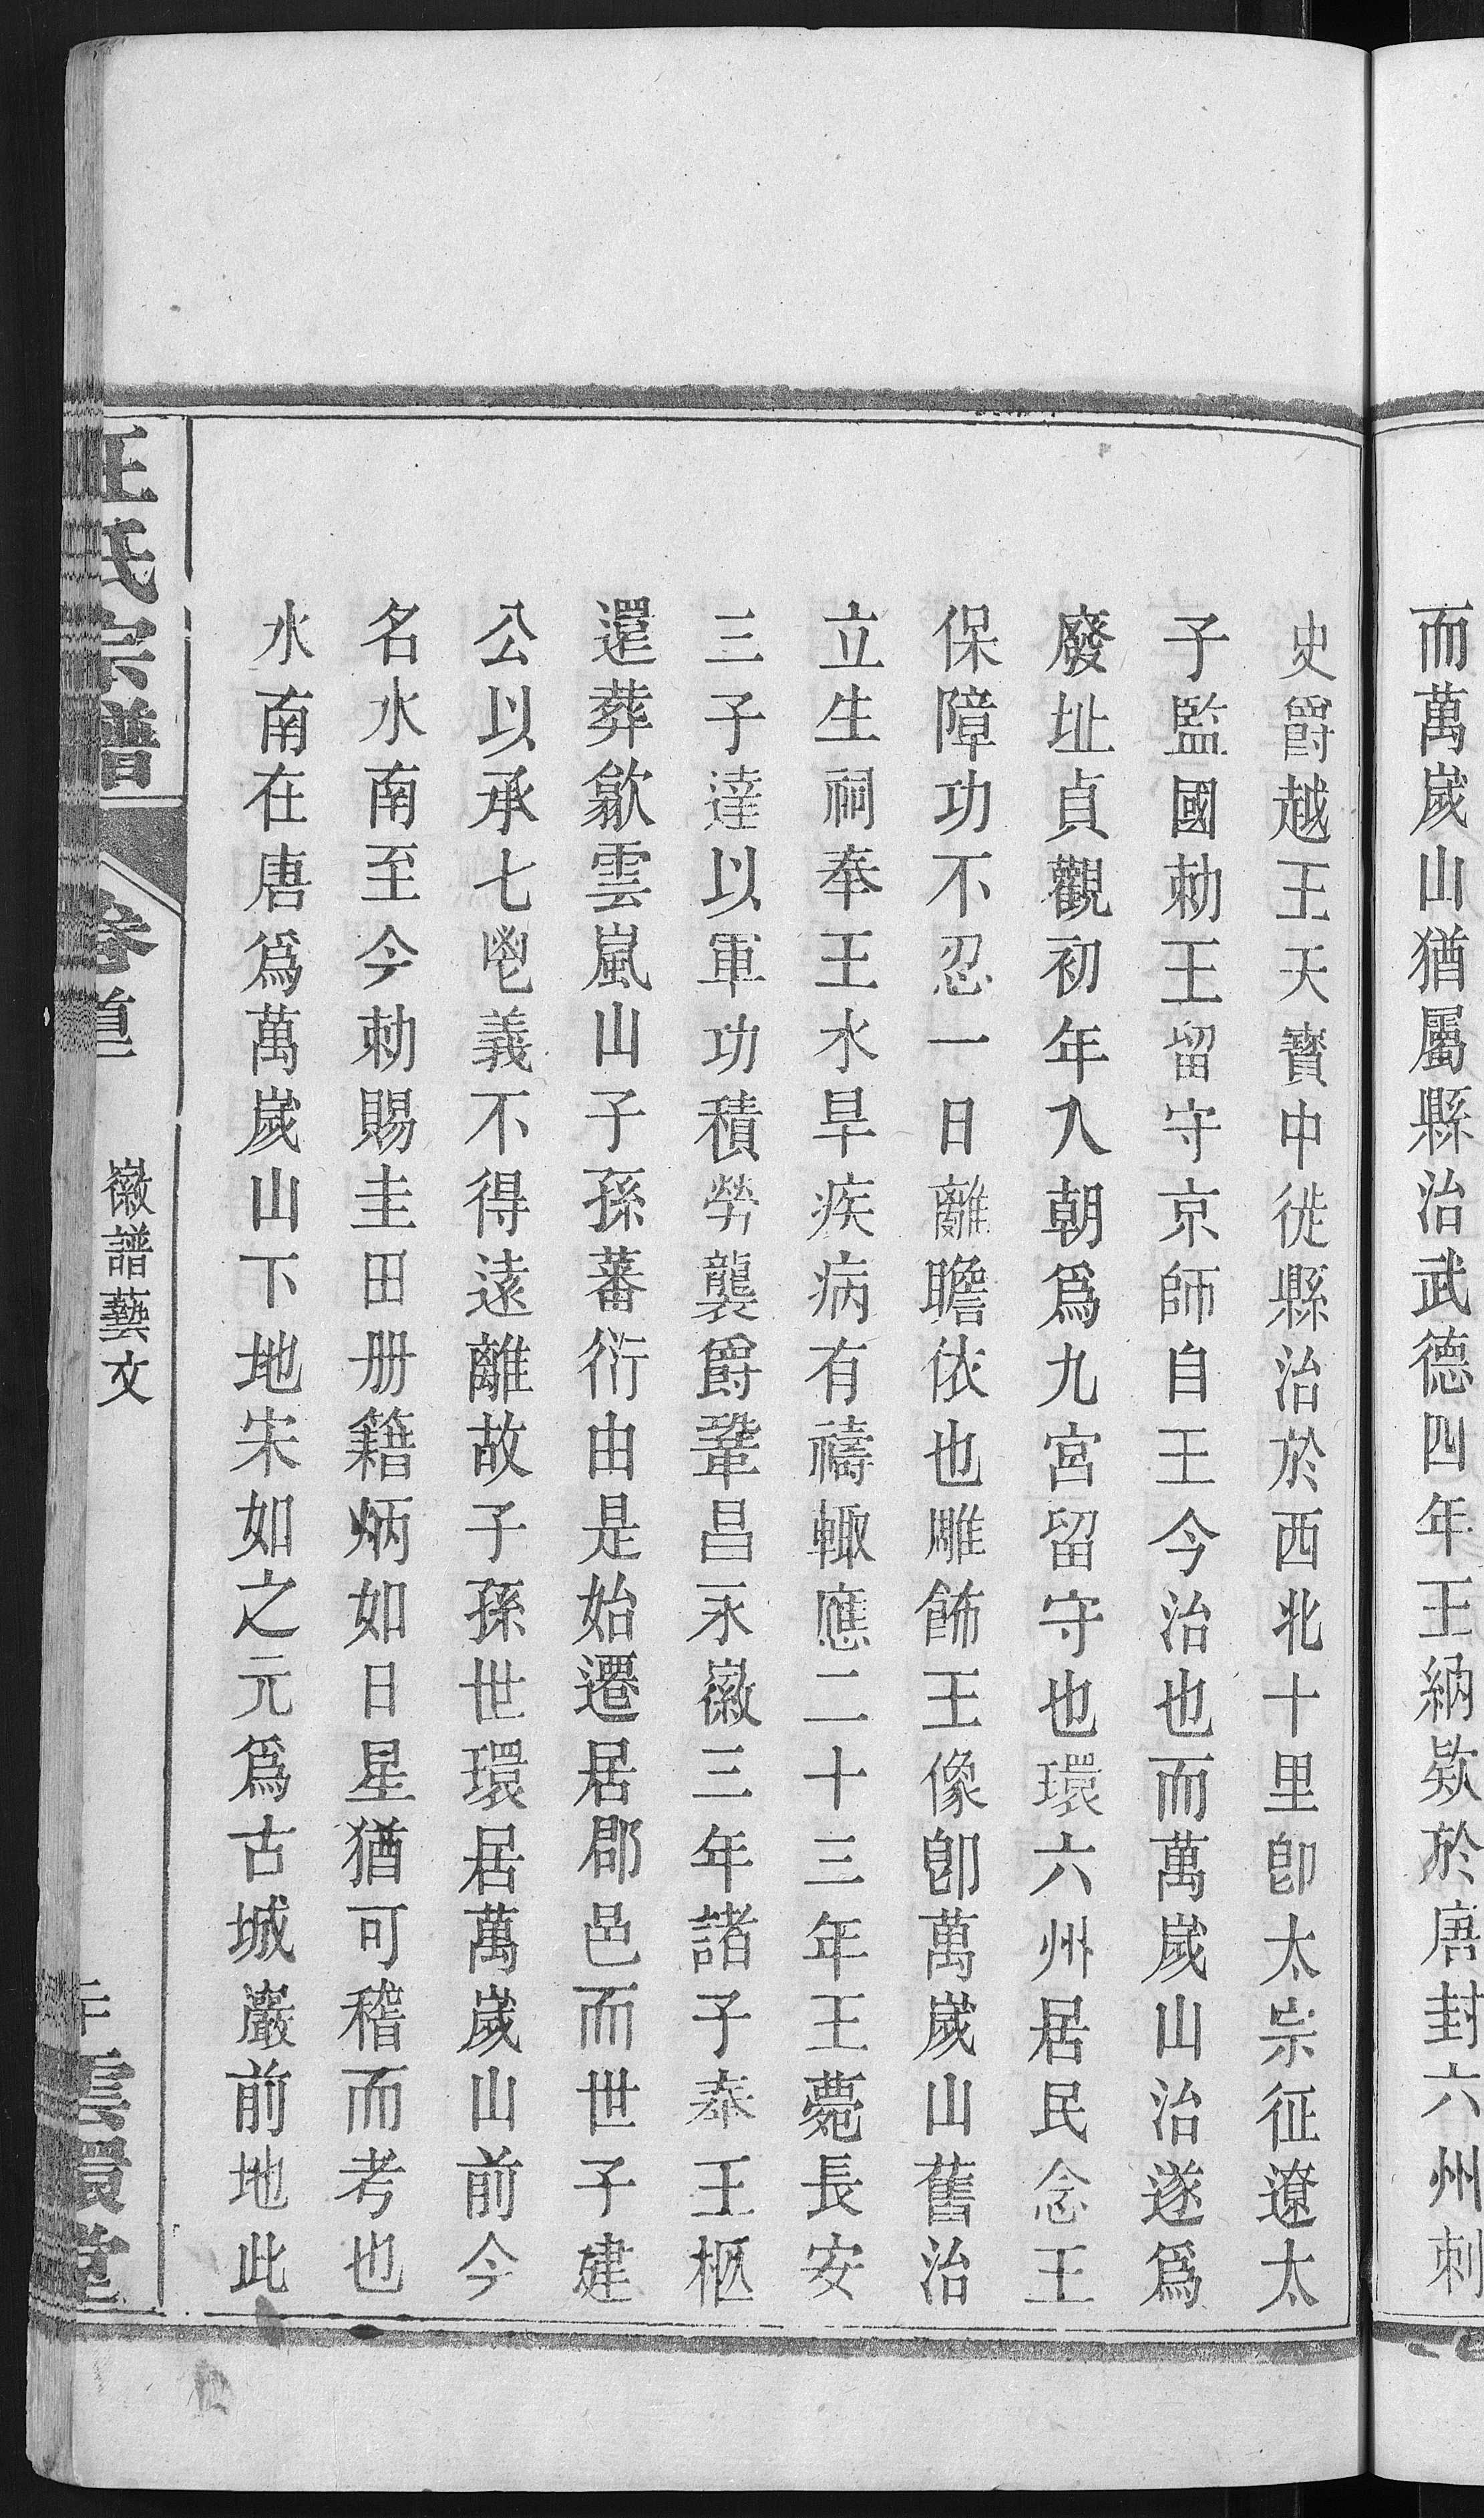 而萬嵗山猶屬縣治武德四年王納欵於唐封六州刺
史爵越王天寶中徙縣治於西北十里卽太宗征遼太
子監國勅王留守京師自王今治也而萬嵗山治遂爲
廢址貞觀初年入朝爲九宮留守也環六州居民念王
保障功不忍一日離瞻依也雕飾王像卽萬嵗山舊治
立生祠奉王水旱疾病有禱輙應二十三年王薨長安
三子達以軍功積勞襲爵鞏昌永徽三年諸子奉王柩
還葬歙雲嵐山子孫蕃衍由是始遷居郡邑而世子建
公以承七鬯義不得遠離故子孫世環居萬嵗山前今
名水南至今勅賜圭田册籍炳如日星猶可稽而考也
水南在唐爲萬嵗山下地宋如之元爲古城巖前地此
汪氏宗譜
卷首
徽譜藝文
雲環堂